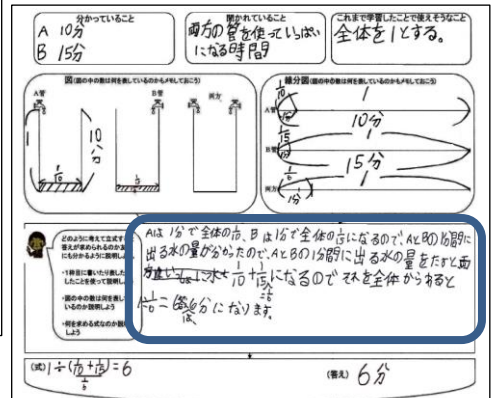 分かっていること
A 10分
B 15分
聞かれていること
両方の管を使っていっぱい
になる時間
これまで学習したことで使えそうなこと
全体を1とする。
図(図の中の数は何を表しているのかもメモしておこう)
A管
B管
両方
1
10分
1/10
1/15
線分図(図の中の数は何を表しているのかもメモしておこう)
1/10
1
A管
1分
10分
1/15
1
B管
1分
15分
1/6
両方
1分
どのように考えて立式す
答えが求められるのか
にも分かるように説明し
・1枠目に書いたり表した
したことを使って説明し
・図の中の数は何を表して
いるのか説明しよう
・何を求める式なのか説明
しよう
Aは1分で全体の1/10、Bは1分で全体の1/15になるので、AとBの1分間に
出る水の量が分かったので、AとBの1分間に出る水の量をたすと
1/10+1/15になるので それを全体からわると
1÷1/6=
6分になります。
(式) 1÷(1/10+1/15)=6
1/6
(答え) 6分